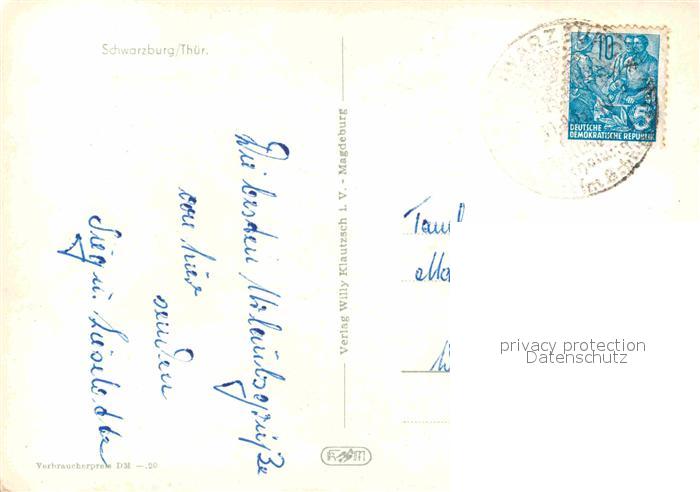 Schwarzburg/Thür.
Die besten Urlaubsgrüße
von hier
senden
Sieg u. Lieselotte
Verbraucherpreis DM —.20
Verlag Willy Klautzsch i. V. - Magdeburg
10
5
DEUTSCHE
DEMOKRATISCHE REPUBLIK
privacy protection
Datenschutz